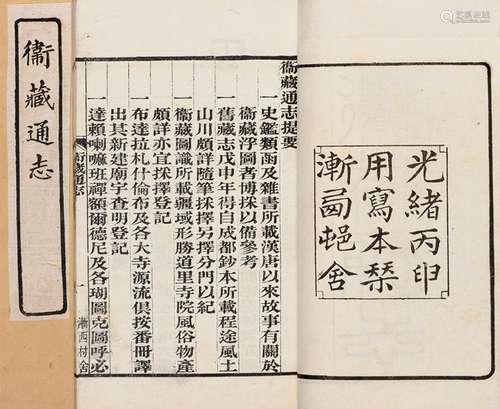 光緒丙申
用寫本栞
漸卥邨舍
衞藏通志提要
一史鑑類函及雜書所載漢唐以來故事有關於
衞藏浮圖者博採以備參考
一舊藏志戊申年得自成都鈔本所載程途風土
山川頗詳隨筆採擇另擇分門以紀
一衞藏圖識所載疆域形勝道里寺院風俗物產
頗詳亦宜採擇登記
一布達拉札什倫布及各大寺源流俱按番冊譯
出其新建廟宇查明登記
一達賴喇嘛班禪額爾德尼及各瑚圖克圖呼必
衞藏通志 一 漸西村舍
衞藏通志